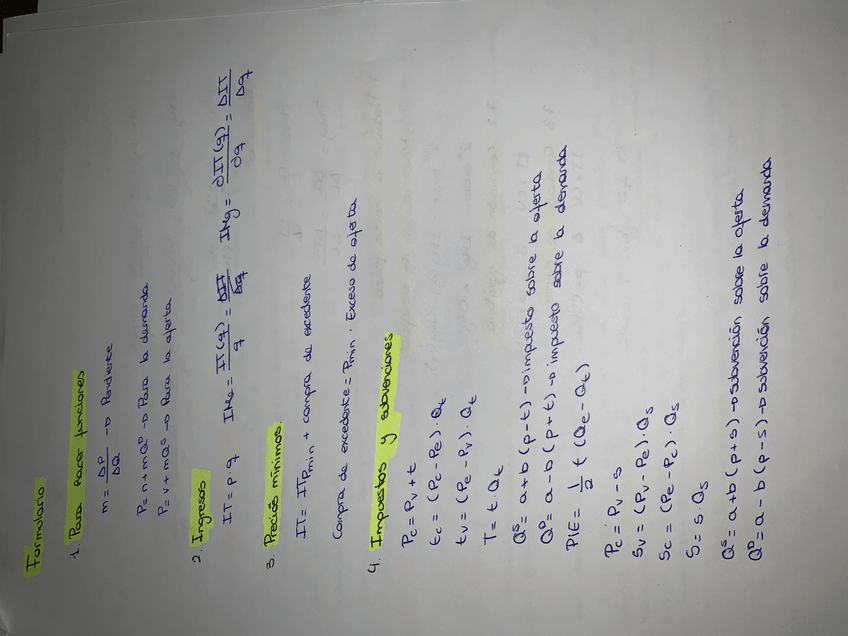 Formulario
1. Para hacer funciones
m = ΔP/ΔQ → Pendiente
P = n + mQᴰ → Para la demanda
P = v + mQˢ → Para la oferta
2. Ingresos
IT = p · q   IMe = IT(q)/q = ΔIT/Δq   IMg = ∂IT(q)/∂q = ΔIT/Δq
3. Precios mínimos.
IT = ITPmin + compra de excedente
Compra de excedente = Pmin · Exceso de oferta
4. Impuestos y subvenciones
Pc = Pv + t
tc = (Pc - Pe) · Qt
tv = (Pe - Pv) · Qt
T = t · Qt
Qˢ = a + b (p - t) → impuesto sobre la oferta
Qᴰ = a - b (p + t) → impuesto sobre la demanda
PIE = 1/2 t (Qe - Qt)
Pc = Pv - s
Sv = (Pv - Pe) · Qs
Sc = (Pe - Pc) · Qs
S = s · Qs
Qˢ = a + b (p + s) → subvención sobre la oferta
Qᴰ = a - b (p - s) → subvención sobre la demanda